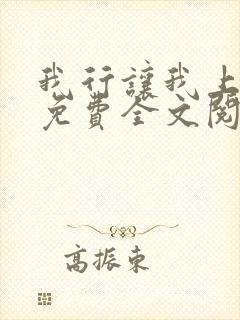 我行讓我上
免費全文閱
高振東